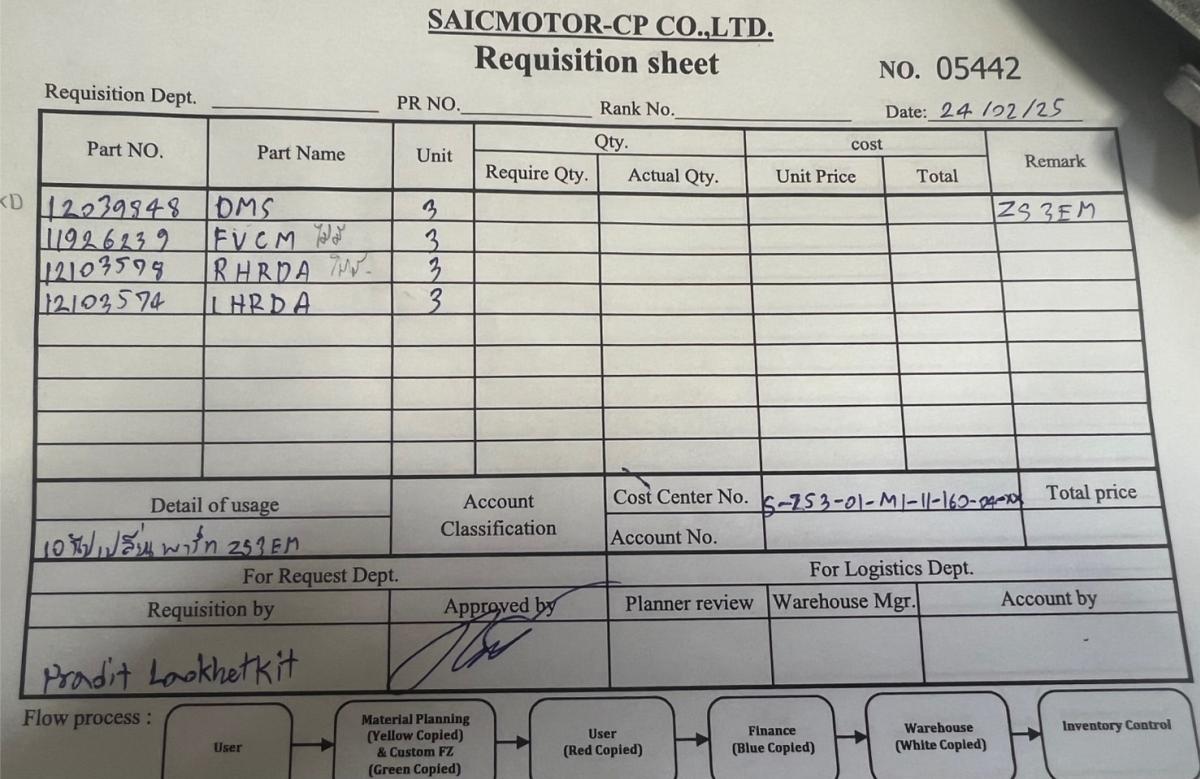 SAICMOTOR-CP CO.,LTD.
Requisition sheet
NO. 05442
Requisition Dept. PR NO. Rank No. Date: 24/02/25
Part NO. Part Name Unit Qty. cost Remark
Require Qty. Actual Qty. Unit Price Total
12039848 DMS 3 ZS3EM
11926239 FVCM ไม่มี 3
12103578 RHRDA 3
12103574 LHRDA 3
Detail of usage Account Classification Cost Center No. S-ZS3-01-M1-11-160-04-xx Total price
Account No.
ไปเปลี่ยนพาร์ท ZS3EM
For Request Dept. For Logistics Dept.
Requisition by Approved by Planner review Warehouse Mgr. Account by
Pradit Laokhetkit
Flow process :
User
Material Planning
(Yellow Copied)
& Custom FZ
(Green Copied)
User
(Red Copied)
Finance
(Blue Copied)
Warehouse
(White Copied)
Inventory Control